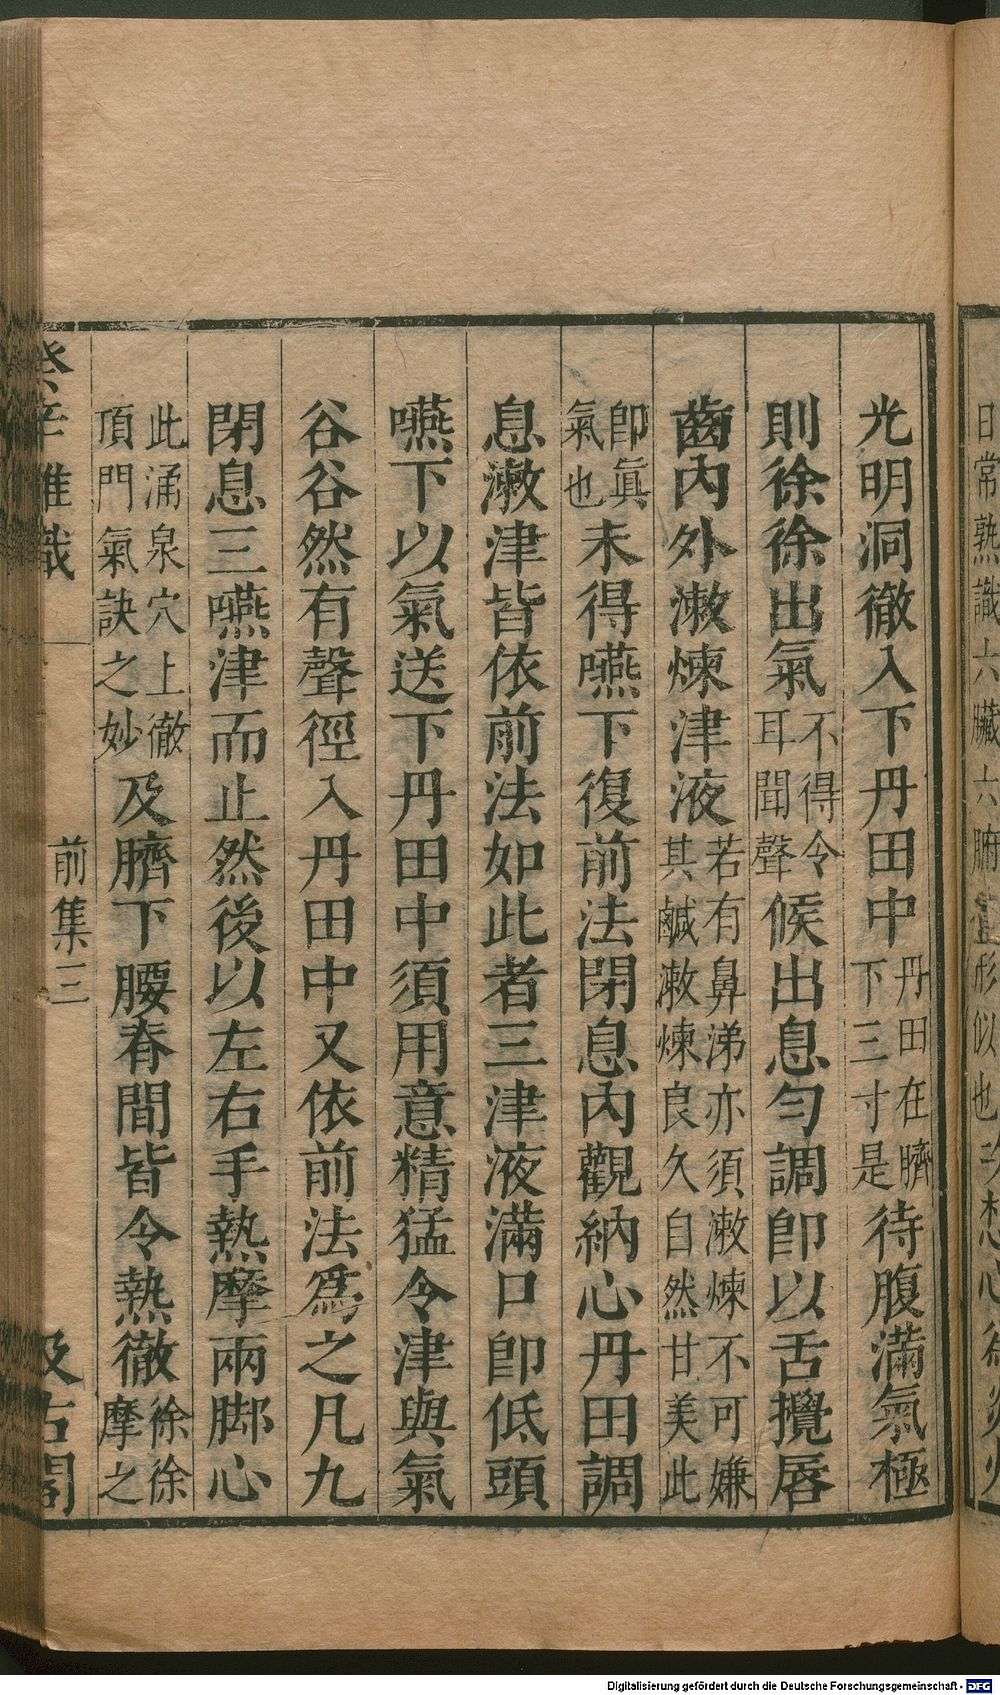 日常熟識六臟六腑宜形似也次想心爲炎火
光明洞徹入下丹田中丹田在臍下三寸是待腹滿氣極
則徐徐出氣不得令耳聞聲候出息勻調卽以舌攪唇
齒內外漱煉津液若有鼻涕亦須漱煉不可嫌其鹹漱煉良久自然甘美此
卽眞氣也未得嚥下復前法閉息內觀納心丹田調
息漱津皆依前法如此者三津液滿口卽低頭
嚥下以氣送下丹田中須用意精猛令津與氣
谷谷然有聲徑入丹田中又依前法爲之凡九
閉息三嚥津而止然後以左右手熱摩兩脚心
此涌泉穴上徹頂門氣訣之妙及臍下腰脊間皆令熱徹徐徐摩之
癸辛雜識
前集三
汲古閣
Digitalisierung gefördert durch die Deutsche Forschungsgemeinschaft - DFG